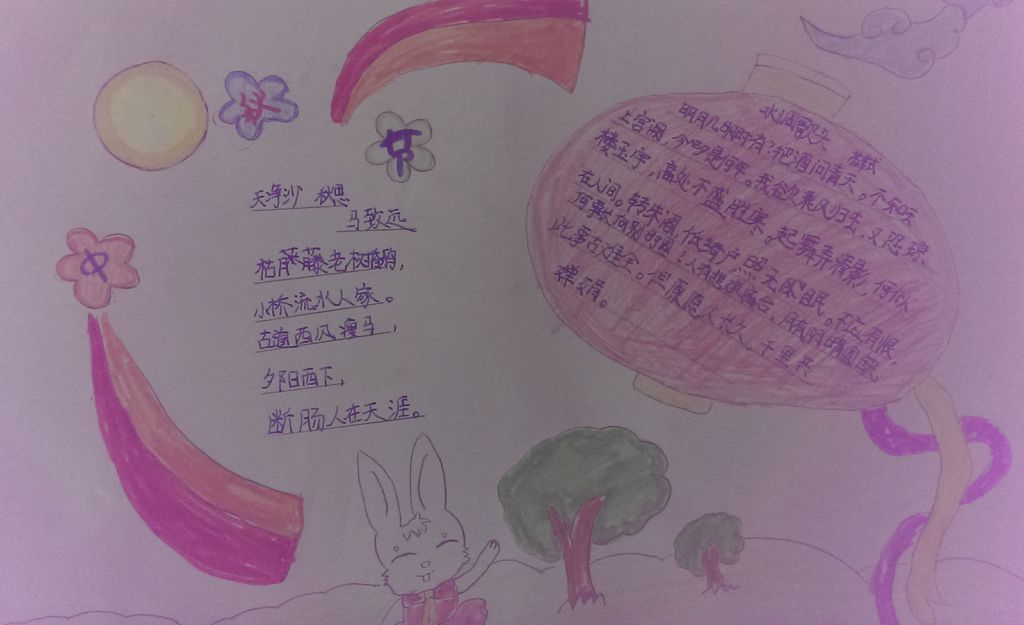 中
秋
节
天净沙 秋思
马致远
枯藤老树昏鸦,
小桥流水人家。
古道西风瘦马,
夕阳西下,
断肠人在天涯。
水调歌头 苏轼
明月几时有?把酒问青天。不知天
上宫阙,今夕是何年。我欲乘风归去,又恐琼
楼玉宇,高处不胜寒。起舞弄清影,何似
在人间。转朱阁,低绮户,照无眠。不应有恨,
何事长向别时圆?人有悲欢离合,月有阴晴圆缺,
此事古难全。但愿人长久,千里共
婵娟。